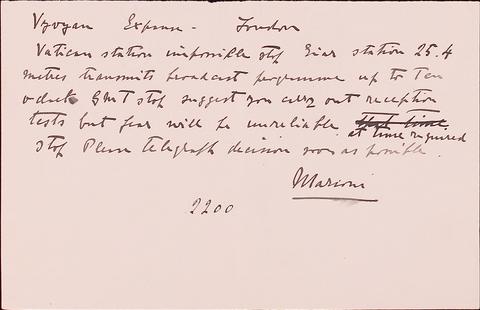 Vyvyan Expanse - London
Vatican station impossible stop Eiar station 25.4
metres transmits broadcast programme up to Ten
o clock GMT stop suggest you carry out reception
tests but fear will be unreliable that time
at time required
stop Please telegraph decision soon as possible.
Marconi
2200